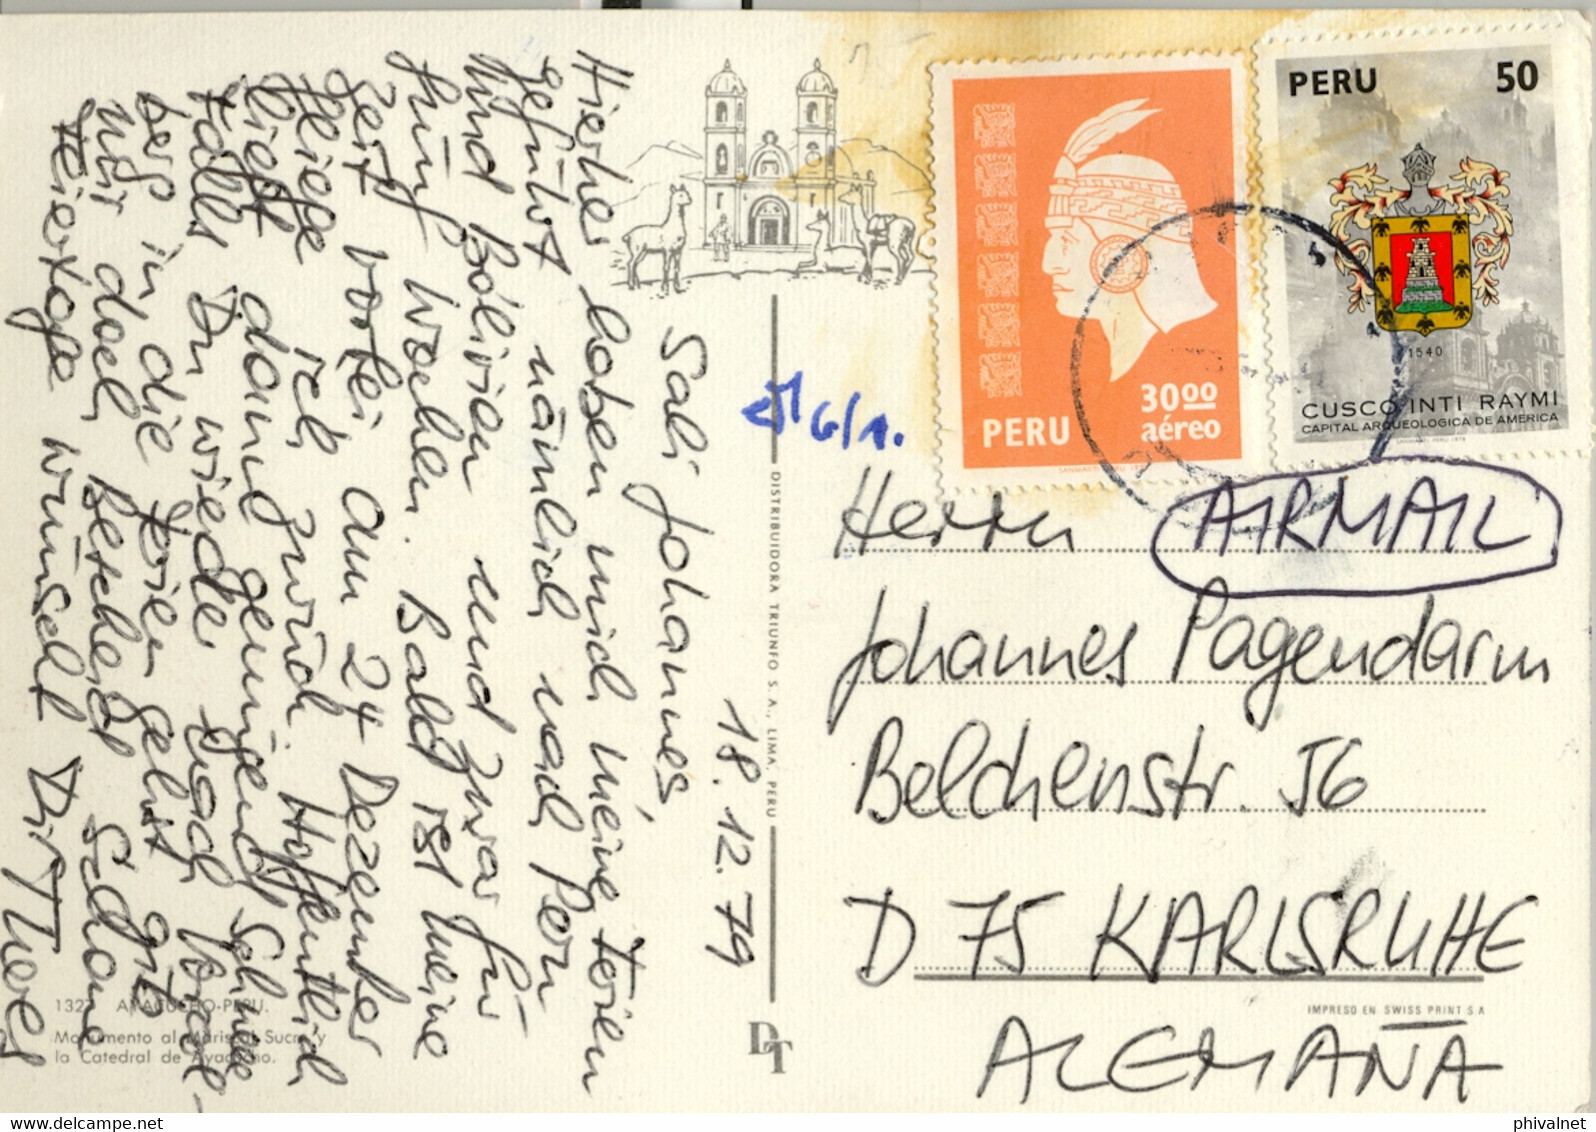 18.12.79
Sali Johannes
Hierher haben mich meine Ferien
geführt nämlich nach Peru
und Bolivien und zwar für
fünf Wochen. Bald ist meine
Zeit vorbei am 24 Dezember
fliege ich zurück. Hoffentlich
liegt dann genügend Schnee
Falls Du wieder nach
ber in die Ferien gehst
mir doch Bescheid Schöne
Feiertage wünscht Dir
PERU
30.00
aéreo
PERU 50
1540
CUSCO INTI RAYMI
CAPITAL ARQUEOLOGICA DE AMERICA
6/1.
AIRMAIL
Herrn
Johannes Pagendarm
Belchenstr. 56
D 75 KARLSRUHE
ALEMAÑA
DISTRIBUIDORA TRIUNFO S.A., LIMA, PERU
DT
IMPRESO EN SWISS PRINT S A
AYACUCHO-PERU.
Monumento al Mariscal Sucre y
la Catedral de Ayacucho.
phivalnet